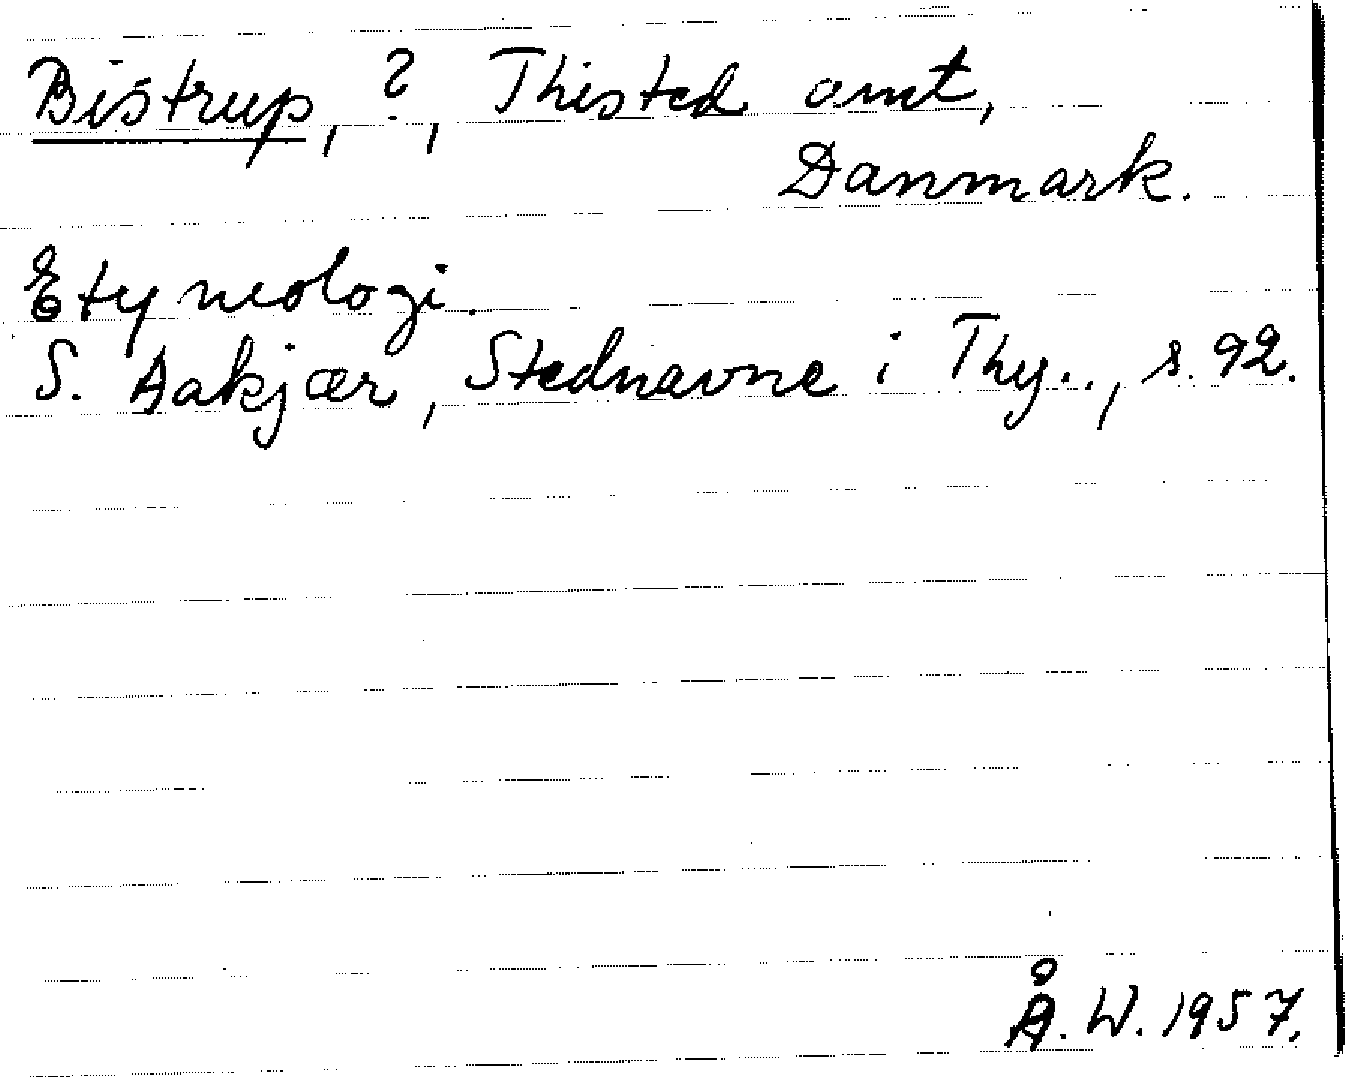 Bistrup, ?, Thisted amt,
Danmark.
Etymologi.
S. Aakjær, Stednavne i Thy.., s. 92.
Å. W. 1957.